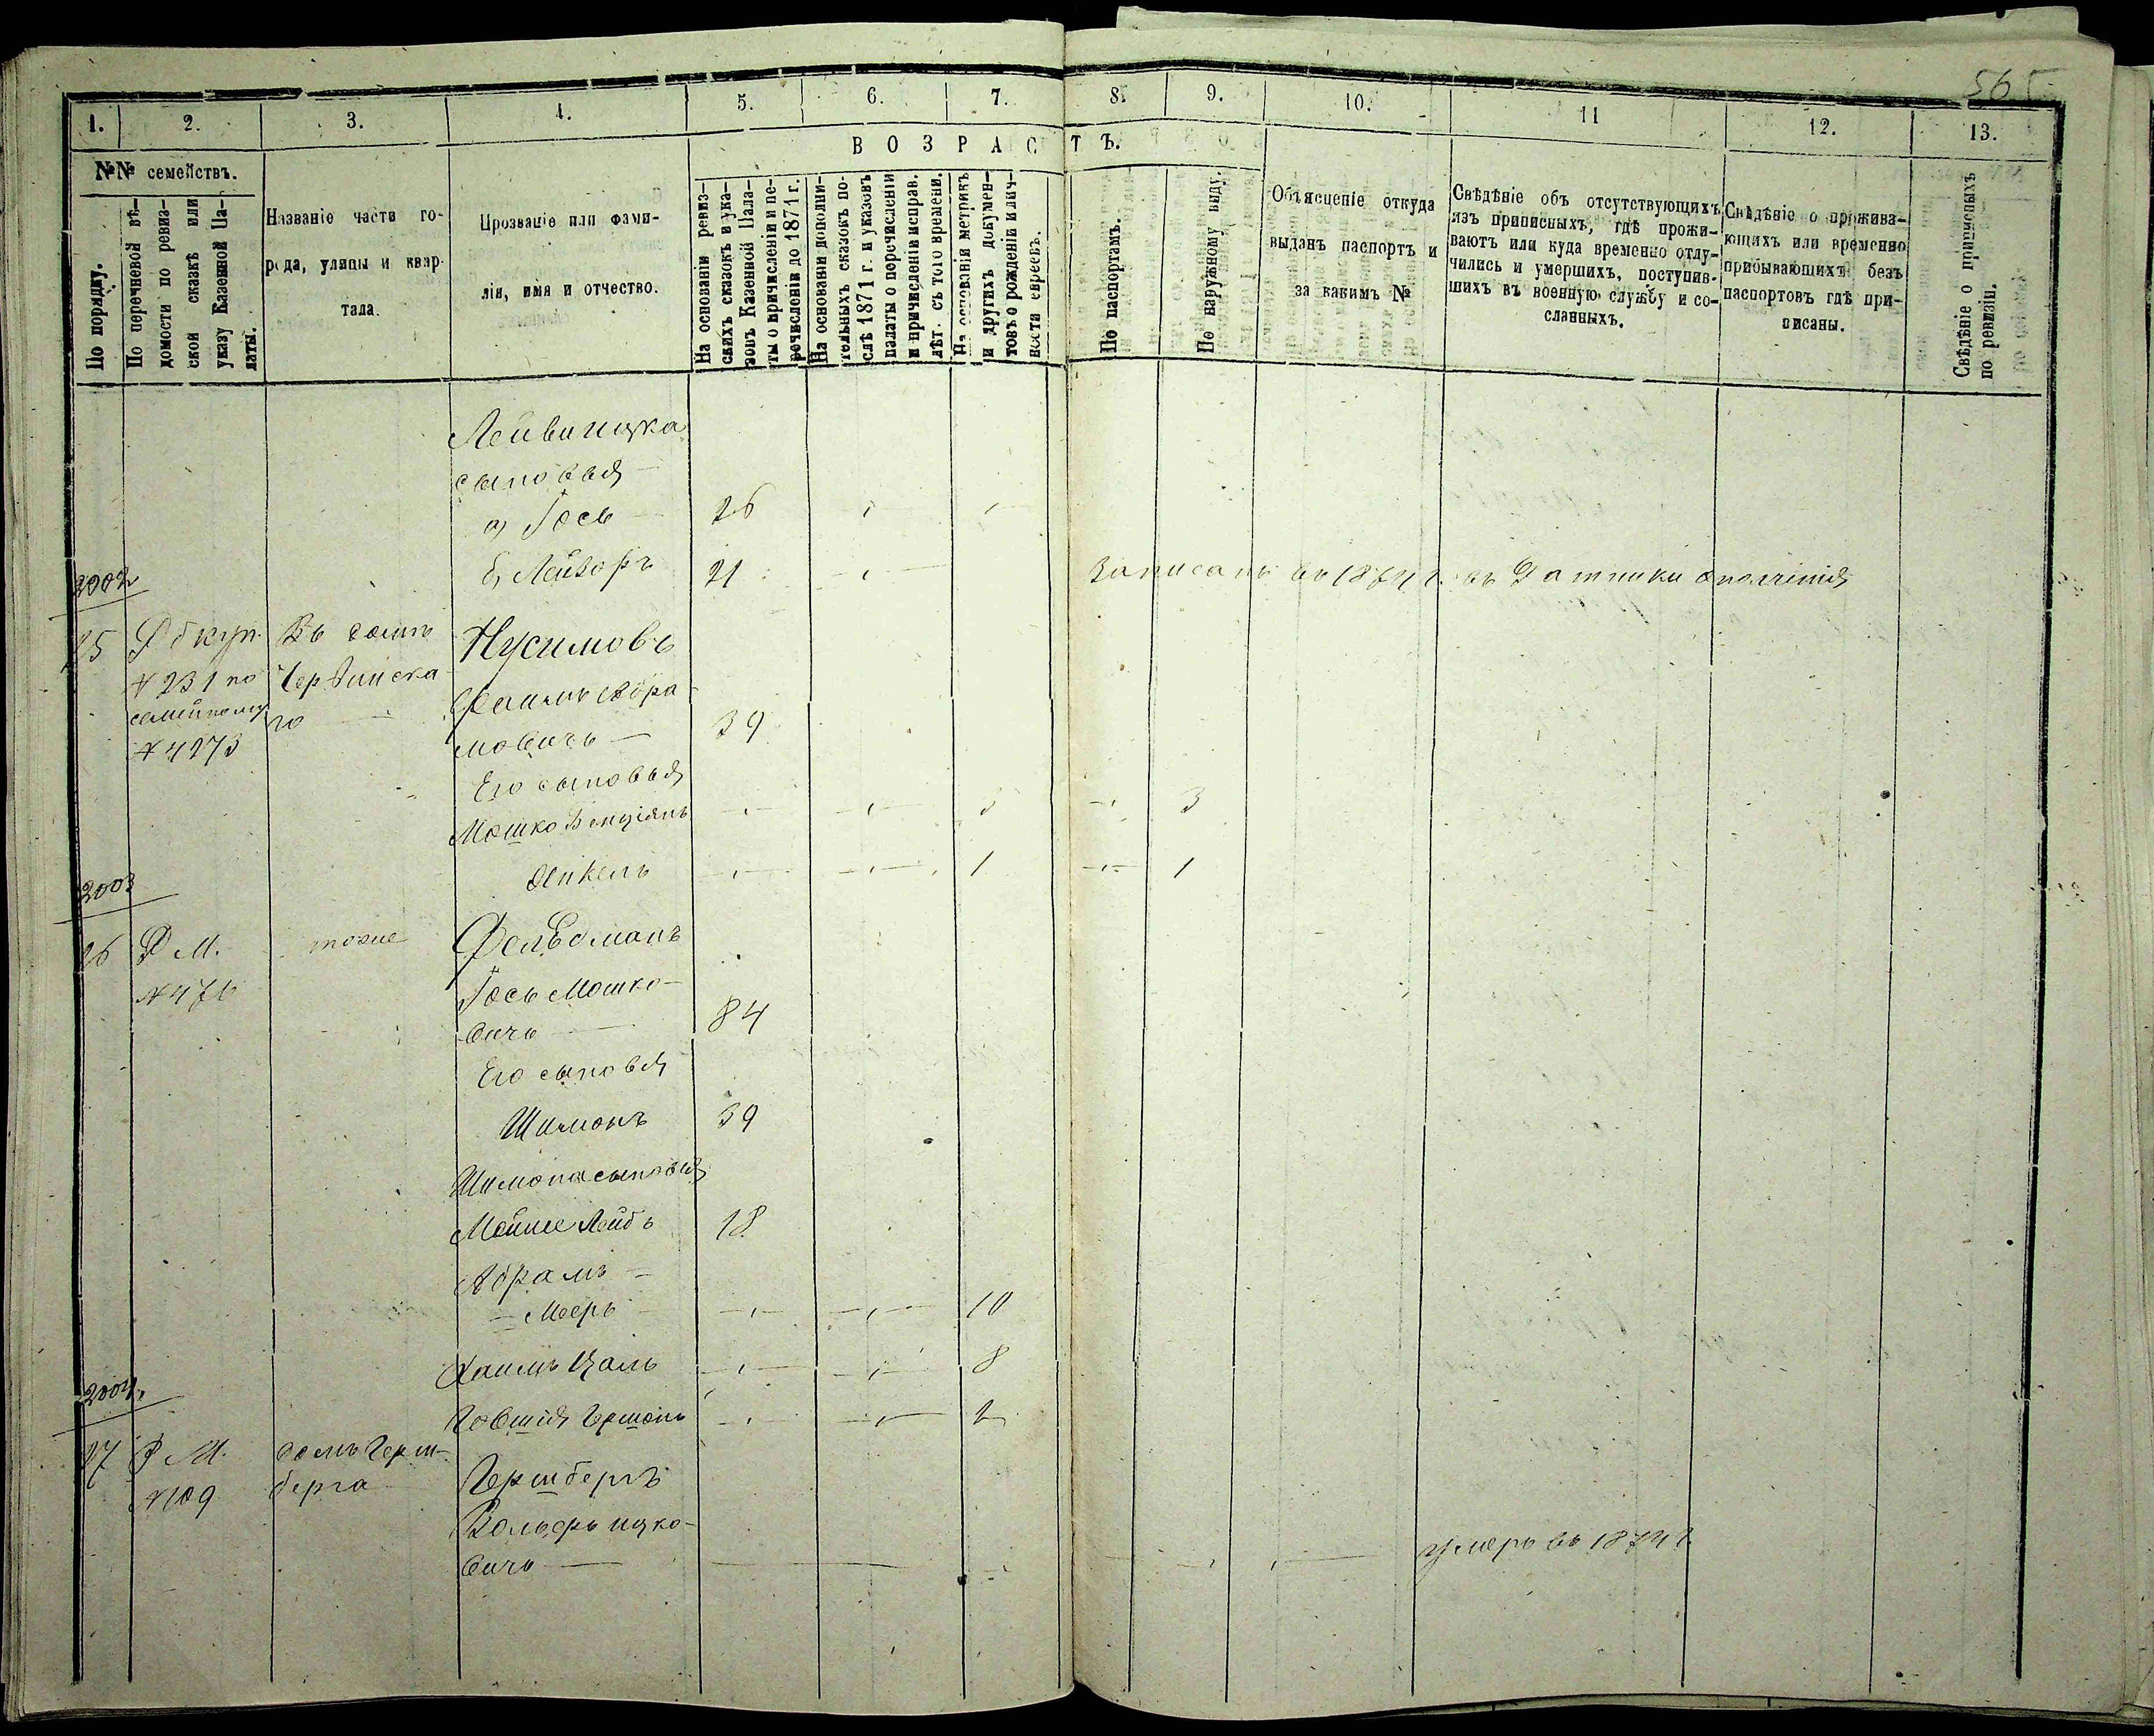 565
1. 2. 3. 4. 5. 6. 7. 8. 9. 10. 11 12. 13.
ВОЗРАСТЪ.
№№ семействъ.
По порядку.
По перечневой вѣ-
домости по ревиз-
ской сказкѣ или
указу Казенной Па-
латы.
Названіе части го-
рода, улицы и квар-
тала.
Прозваніе или фами-
лія, имя и отчество.
На основаніи ревиз-
скихъ сказокъ и ука-
зовъ Казенной Пала-
ты о причисленіи и пе-
речисленіи до 1871 г.
На основаніи дополни-
тельныхъ сказокъ по-
слѣ 1871 г. и указовъ
палаты о перечисленіи
и причисленіи исправ.
лѣт. съ того времени.
На основаніи метрикъ
и другихъ докумен-
товъ о рожденіи и лич-
ности евреевъ.
По паспортамъ.
По наружному виду.
Объясненіе откуда
выданъ паспортъ и
за какимъ №
Свѣдѣніе объ отсутствующихъ
изъ приписныхъ, гдѣ прожи-
ваютъ или куда временно отлу-
чились и умершихъ, поступив-
шихъ въ военную службу и со-
сланныхъ.
Свѣдѣніе о прожива-
ющихъ или временно
прибывающихъ безъ
паспортовъ гдѣ при-
писаны.
Свѣдѣніе о приписныхъ
по ревизіи.
Лейви ицка
сыновья
а, Іось 26
б, Лейзоръ 21 Записанъ въ 1874 г. въ ратники ополченія
2002
25 Р б куп. Въ домѣ Нусимовъ
№ 231 по
семейному го
№ 4273
Хаимъ Абра-
мовичъ 39
Его сыновья
Мошко Бенціянъ 3 3
1 1
2003
26 Р М. тоже Фельдманъ
№ 476 Іось Мошко-
вичъ 84
Его сыновья
Шимонъ 59
Шимона сыновья
Мойше Лейбъ 18
Абрамъ
Мееръ 10
Хаимъ Цаль 8
Говшія Гершонъ 2
2004.
27 Р М. домъ Герш-
№ 109 берга Гершбергъ
Вольфъ ицко-
вичъ умеръ въ 1874 г.